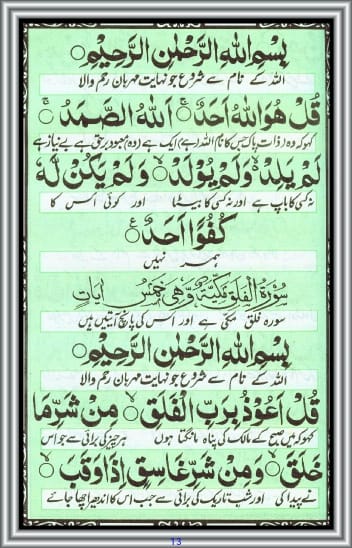 بِسْمِ اللّٰهِ الرَّحْمٰنِ الرَّحِيْمِ ۝
اللہ کے نام سے شروع جو نہایت مہربان رحم والا
قُلْ هُوَ اللّٰهُ اَحَدٌ ۝ۚ اَللّٰهُ الصَّمَدُ ۝ۚ
کہو کہ وہ (ذات پاک جس کا نام اللہ ہے) ایک ہے (وہ) معبود برحق ہے بے نیاز ہے
لَمْ يَلِدْ ۙ وَلَمْ يُوْلَدْ ۝ۙ وَلَمْ يَكُنْ لَّهٗ
نہ کسی کا باپ ہے اور نہ کسی کا بیٹا اور کوئی اس کا
كُفُوًا اَحَدٌ ۝ع
ہمسر نہیں
سُوْرَةُ الْفَلَقِ مَكِّيَّةٌ وَّهِىَ خَمْسُ اٰيَاتٍ
سورہ فلق مکی ہے اور اس کی پانچ آیتیں ہیں
بِسْمِ اللّٰهِ الرَّحْمٰنِ الرَّحِيْمِ ۝
اللہ کے نام سے شروع جو نہایت مہربان رحم والا
قُلْ اَعُوْذُ بِرَبِّ الْفَلَقِ ۝ۙ مِنْ شَرِّ مَا
کہو کہ میں صبح کے مالک کی پناہ مانگتا ہوں ہر چیز کی برائی سے جو اس
خَلَقَ ۝ۙ وَمِنْ شَرِّ غَاسِقٍ اِذَا وَقَبَ ۝ۙ
نے پیدا کی اور شب تاریک کی برائی سے جب اس کا اندھیرا چھا جائے
13